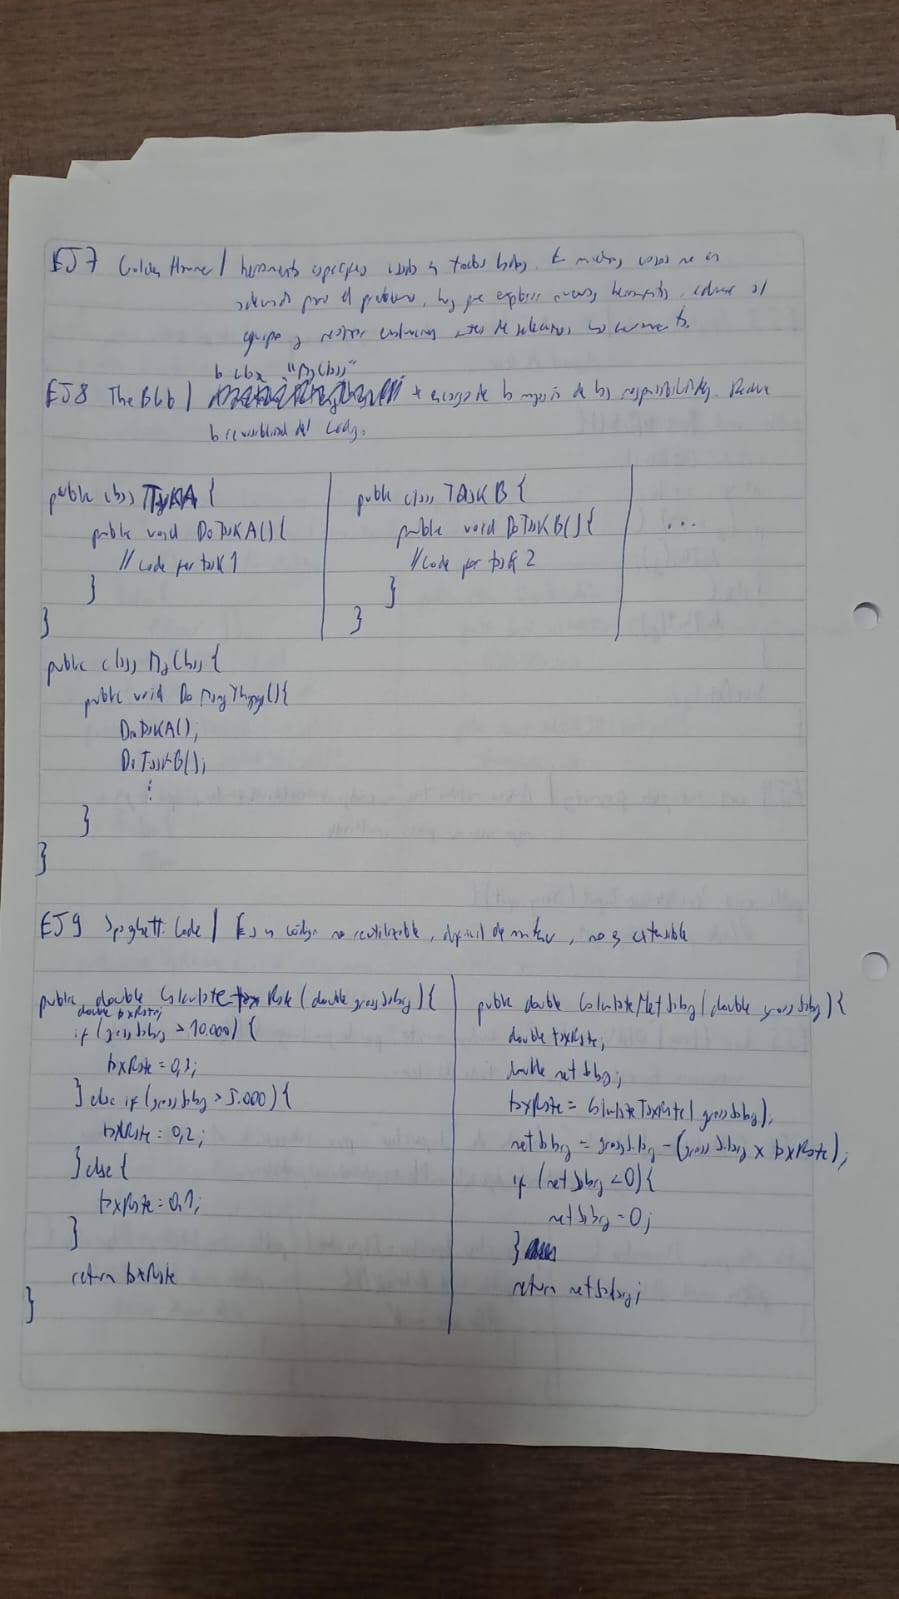 EJ7 Golden Hammer / herramienta específica usada en todos lados. En muchos casos no es
adecuado para el problema, hay que explorar nuevas herramientas, educar al
equipo y antes de seleccionar una herramienta.
la clase "MyClass"
EJ8 The Blob / se encarga de la mayoría de las responsabilidades. Reduce
la reusabilidad del codigo.
public class TaskA {
public void DoTaskA(){
// code for task 1
}
}
public class TaskB {
public void DoTaskB(){
// code for task 2
}
}
...
public class MyClass {
public void DoManyThings(){
DoTaskA();
DoTaskB();
⋮
}
}
EJ9 Spaghetti Code / Es un código no reutilizable, difícil de mantener, no es extensible
public double CalculateTaxRate (double grossSalary){
double taxRate;
if (grossSalary > 10.000) {
taxRate = 0,3;
} else if (grossSalary > 5.000) {
taxRate = 0,2;
} else {
taxRate = 0,1;
}
return taxRate
}
public double CalculateNetSalary (double grossSalary){
double taxRate;
double netSalary;
taxRate = CalculateTaxRate(grossSalary);
netSalary = grossSalary - (grossSalary x taxRate);
if (netSalary < 0) {
netSalary = 0;
}
return netSalary;